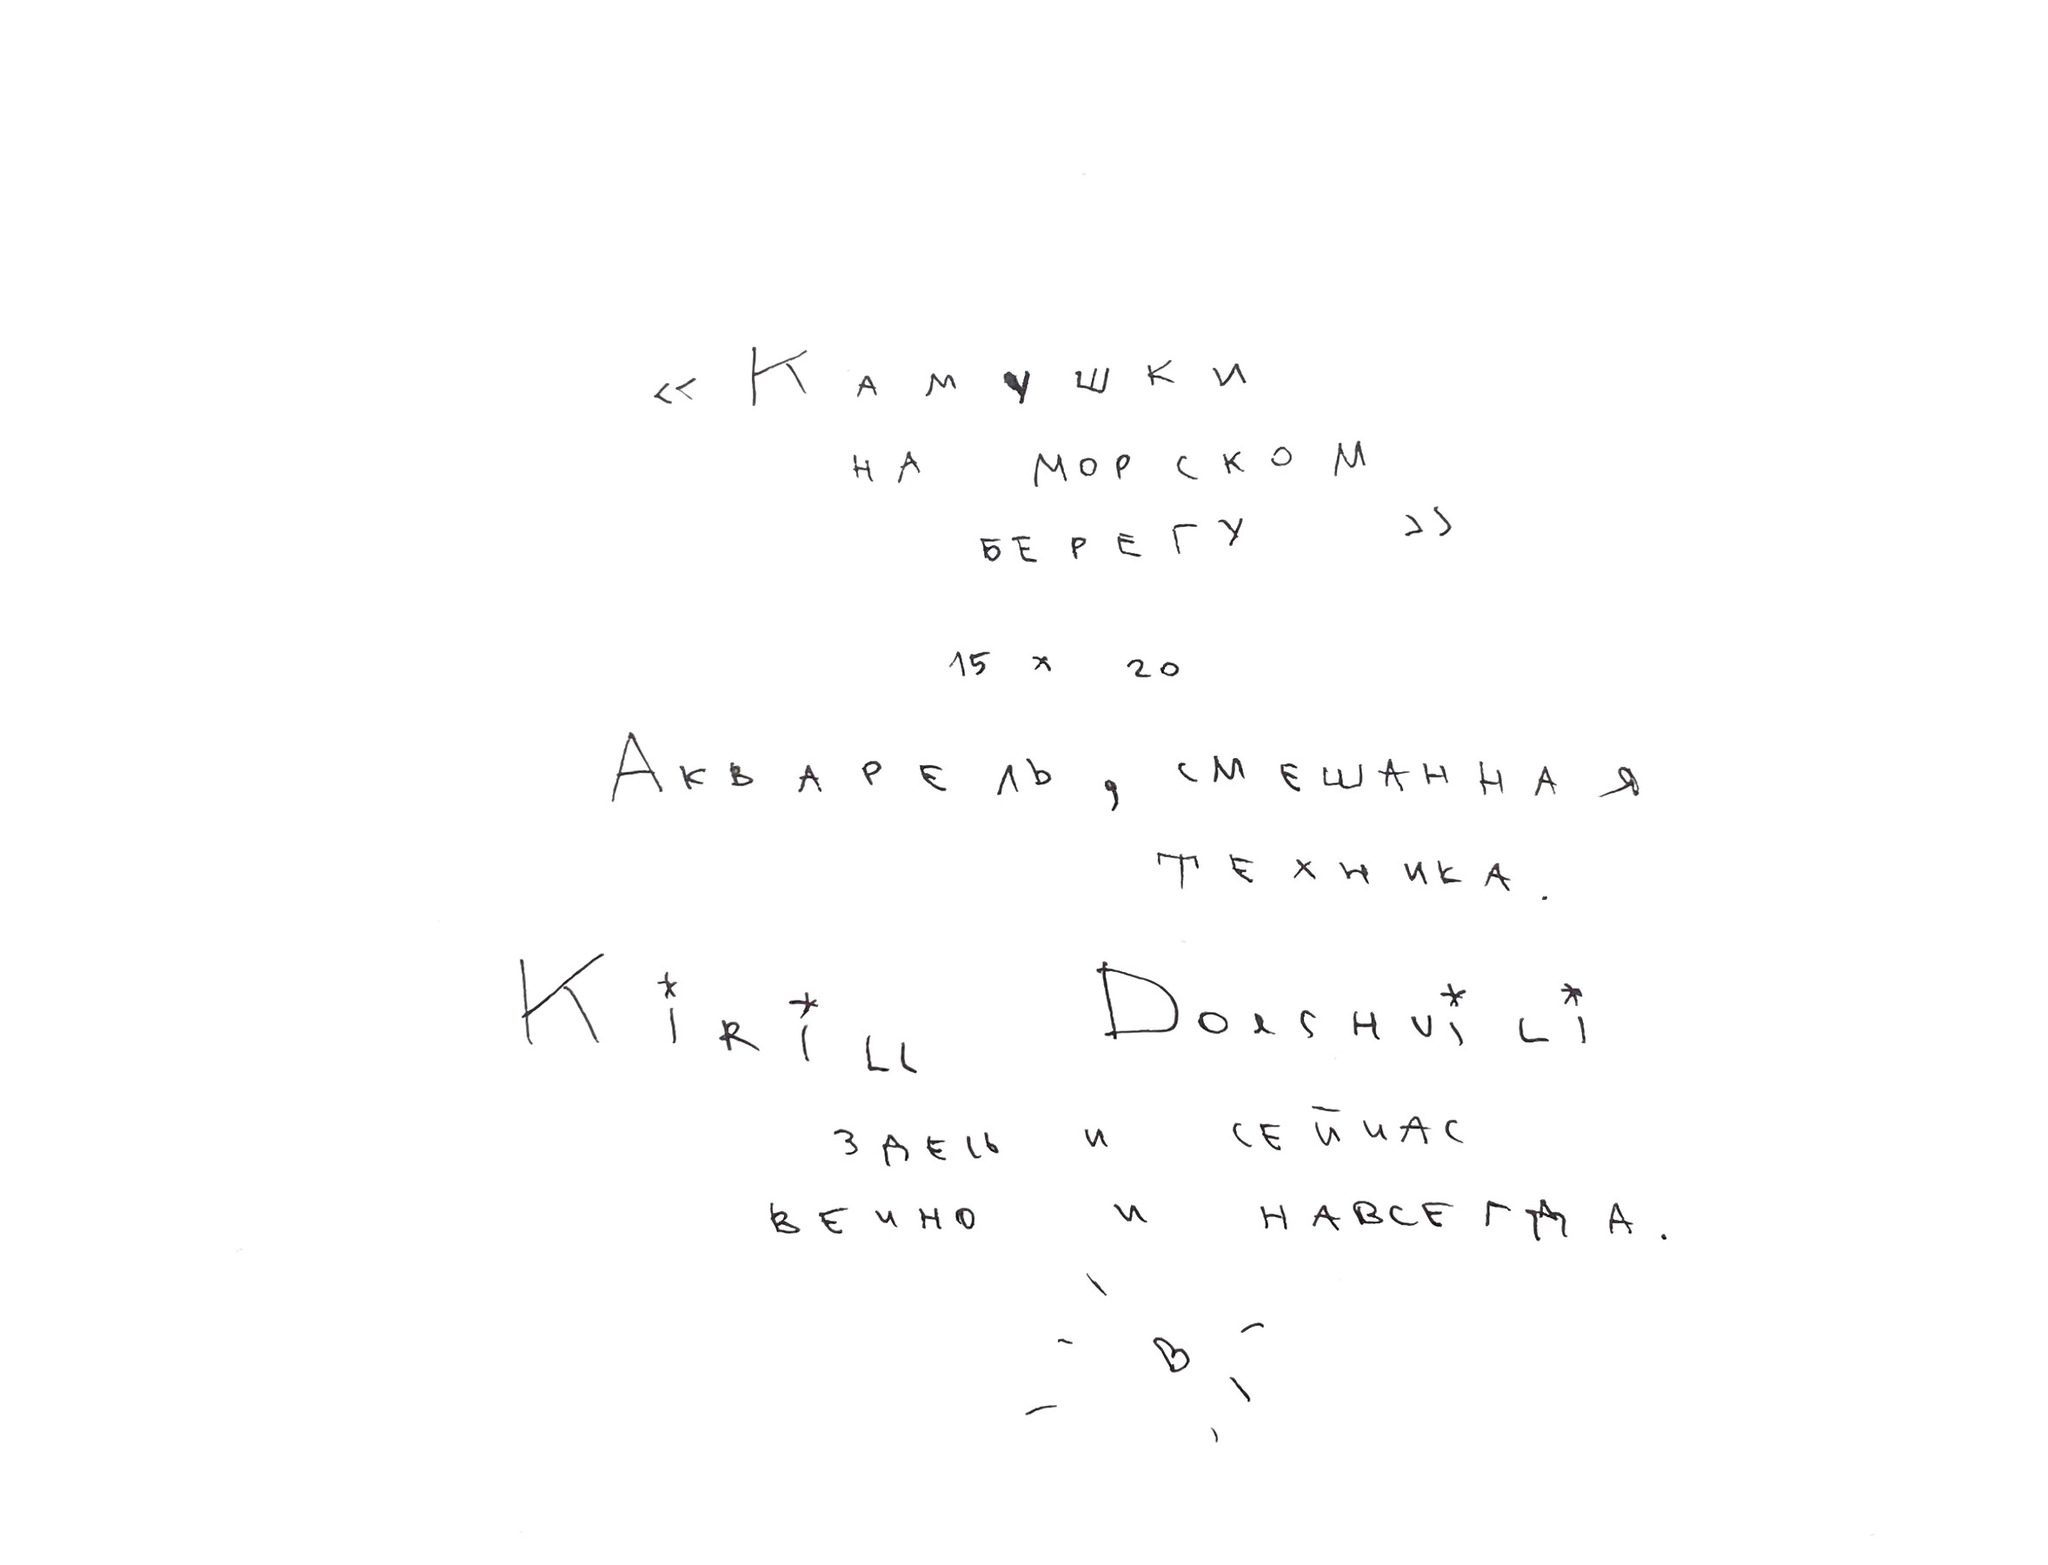 «Камушки
на морском
берегу»
15 x 20
Акварель, смешанная
техника.
Kirill Doeshvili
здесь и сейчас
вечно и навсегда.